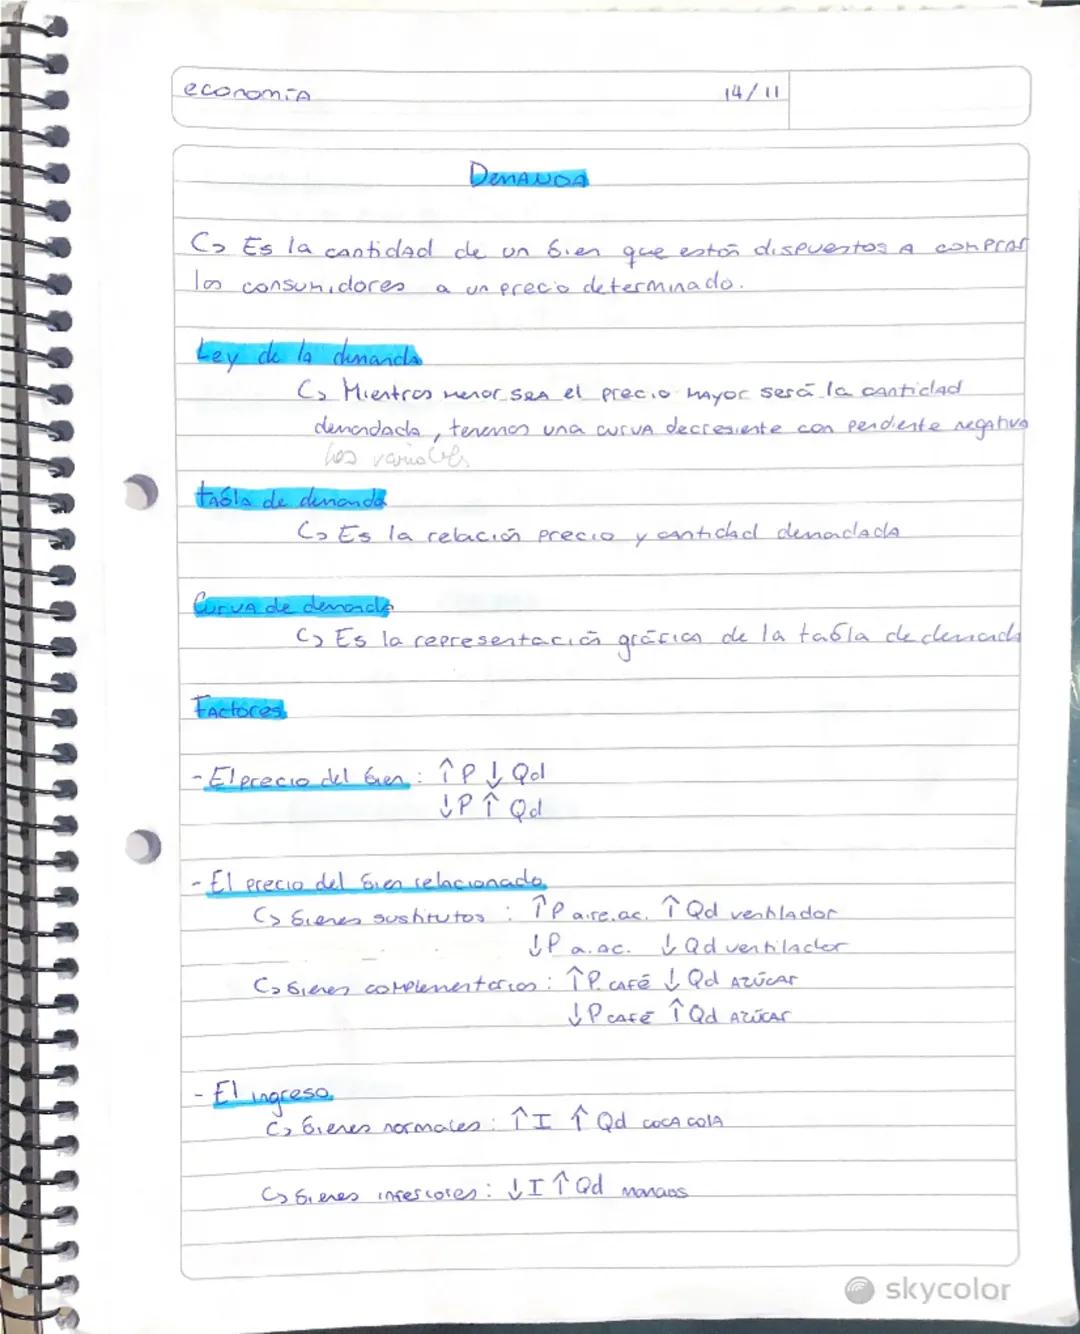 economía 14/11
Demanda
↳ Es la cantidad de un bien que están dispuestos a comprar
los consumidores a un precio determinado.
Ley de la demanda
↳ Mientras menor sea el precio mayor será la cantidad
demandada, tenemos una curva decresiente con pendiente negativa
las variables
tabla de demanda
↳ Es la relación precio y cantidad demadada
Curva de demanda
↳ Es la representación gráfica de la tabla de demanda
Factores
- El precio del bien: ↑P ↓ Qd
↓P ↑ Qd
- El precio del bien relacionado
↳ bienes sustitutos: ↑P aire.ac. ↑ Qd ventilador
↓P a.ac. ↓ Qd ventilador
↳ bienes complementarios: ↑P. café ↓ Qd azúcar
↓P café ↑ Qd azúcar
- El ingreso
↳ bienes normales: ↑I ↑ Qd coca cola
↳ bienes inferiores: ↓I ↑ Qd manaos
skycolor